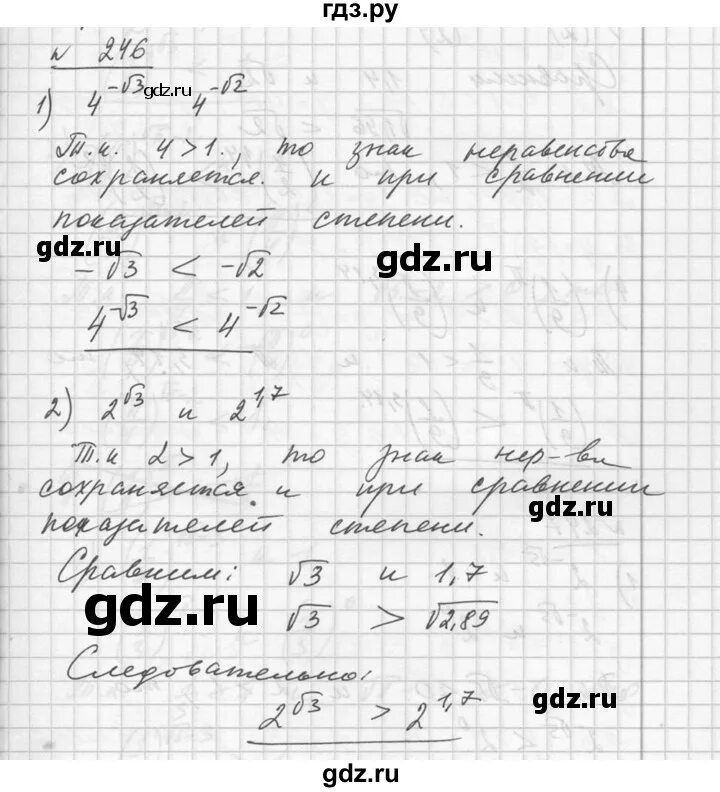 гдз.ру
№ 246
1) 4^-√3 gdz.ru 4^-√2
Т.к. 4 > 1, то знак неравенства
сохраняется. и при сравнении
показателей степени.
gdz.ru
gdz.ru
-√3 < -√2
4^-√3 < 4^-√2
2) 2^√3 и 2^1,7
Т.к 2 > 1, то знак нер-ва
сохраняется и при сравнении
gdz.ru
показателей степени.
Сравним: √3 и 1,7
gdz.ru
√3 > √2,89
Следовательно:
gdz.ru
2^√3 > 2^1,7
gdz.ru